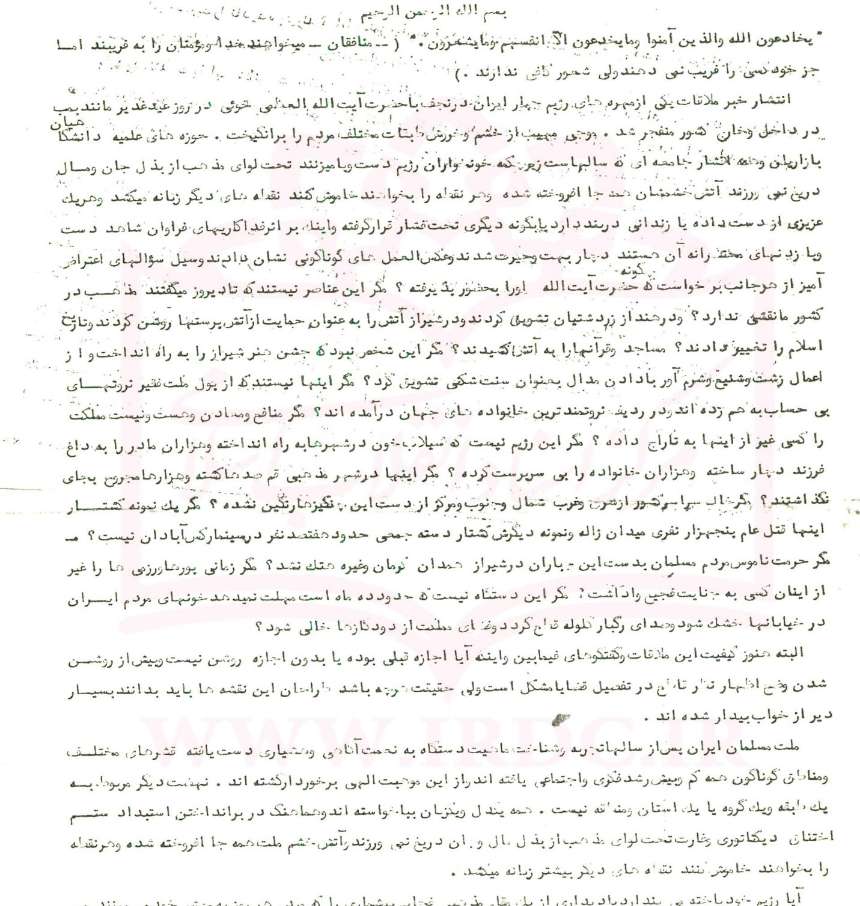 بسم الله الرحمن الرحیم
"یخادعون الله والذین آمنوا ومایخدعون الا انفسهم ومایشعرون." ( -- منافقان -- میخواهند خدا ومؤمنان را به فریبند اما
جز خود کسی را فریب نمی دهند ولی شعور کافی ندارند .)
انتشار خبر ملاقات یکی از مهره های رژیم جبار ایران درنجف باحضرت آیت الله العظمی خوئی در روز عید غدیر مانند بمب
در داخل وخارج کشور منفجر شد . موجی مهیب از خشم وخروش طبقات مختلف مردم را برانگیخت . حوزه های علمیه دانشگاهیان
بازاریان وهمه اقشار جامعه ای که سالهاست زیر یکه خونخواران رژیم دست وپا میزنند تحت لوای مذهب از بذل جان ومال
دریغ نمی ورزند آتش خشمشان همه جا افروخته شده وهر نقطه را بخواهند خاموش کنند نقطه های دیگر زبانه میکشد وهریک
عزیزی از دست داده یا زندانی دربند دارد یا بگونه دیگری تحت فشار قرارگرفته واینک بر اثر فداکاریهای فراوان شاهد دست
وپا زدنهای محتضرانه آن هستند دچار بهت وحیرت شدند وعکس العمل های گوناگونی نشان دادند وسیل سؤالهای اعتراض
آمیز از هرجانب برخواست که حضرت آیت الله چگونه اورا بحضور پذیرفته ؟ مگر این عناصر نیستند که تا دیروز میگفتند مذهب در
کشور ما نقشی ندارد؟ ودرهند از زردشتیان تشویق کردند ودر شیراز آتش را به عنوان حمایت از آتش پرستها روشن کردند وتاریخ
اسلام را تغییر دادند؟ مساجد وقرآنها را به آتش کشیدند؟ مگر این شخص نبود که جشن هنر شیراز را به راه انداخت و از
اعمال زشت وشنیع وشرم آور با دادن مدال بعنوان سنت شکنی تشویق کرد؟ مگر اینها نیستند که از پول ملت فقیر ثروتهای
بی حساب به هم زده اند ودر ردیف ثروتمندترین خانواده های جهان درآمده اند؟ مگر منافع ومعادن وهست ونیست مملکت
را کسی غیر از اینها به تاراج داده ؟ مگر این رژیم نیست که سیلاب خون در شهرها به راه انداخته وهزاران مادر را به داغ
فرزند دچار ساخته وهزاران خانواده را بی سرپرست کرده ؟ مگر اینها درشهر مذهبی قم صدها کشته وهزارها مجروح بجای
نگذاشتند؟ مگر خاک سراسر کشور از شرق وغرب شمال وجنوب ومرکز از دست این چنگیزها رنگین نشده ؟ مگر یک نمونه کشتار
اینها قتل عام پنجهزار نفری میدان ژاله ونمونه دیگرش کشتار دسته جمعی حدود هفتصد نفر در سینمارکس آبادان نیست؟ -
مگر حرمت ناموس مردم مسلمان بدست این جباران در شیراز همدان کرمان وغیره هتک نشد؟ مگر زمانی پورها ورزمی ها را غیر
از اینان کسی به جنایت فجیع واداشت؟ مگر این دستگاه نیست که حدود ده ماه است مهلت نمیدهد خونهای مردم ایران
در خیابانها خشک شود وصدای رگبار گلوله قطع گردد وفضای مملکت از دود گازها خالی شود؟
البته هنوز کیفیت این ملاقات وگفتگوهای فیمابین واینکه آیا اجازه قبلی بوده یا بدون اجازه روشن نیست وپیش از روشن
شدن وضع اظهار نظر قاطع در تفصیل قضایا مشکل است ولی حقیقت هرچه باشد طراحان این نقشه ها باید بدانند بسیار
دیر از خواب بیدار شده اند .
ملت مسلمان ایران پس از سالها تجربه وشناخت ماهیت دستگاه به نعمت آگاهی وهشیاری دست یافته قشرهای مختلف
ومناطق گوناگون همه کم وبیش رشد فکری واجتماعی یافته اند واز این موهبت الهی برخوردار گشته اند . نهضت دیگر مربوط به
یک طبقه ویک گروه یا یک استان ومنطقه نیست . همه یکدل ویکزبان بپا خواسته اند وهماهنگ در برانداختن استبداد ستم
اختناق دیکتاتوری وغارت تحت لوای مذهب از بذل مال و جان دریغ نمی ورزند وآتش خشم ملت همه جا افروخته شده وهر نقطه
را بخواهند خاموش کنند نقطه های دیگر بیشتر زبانه میکشد .
آیا رژیم خودباخته می پندارد با دیداری از یک
WWW.IRDC.IR